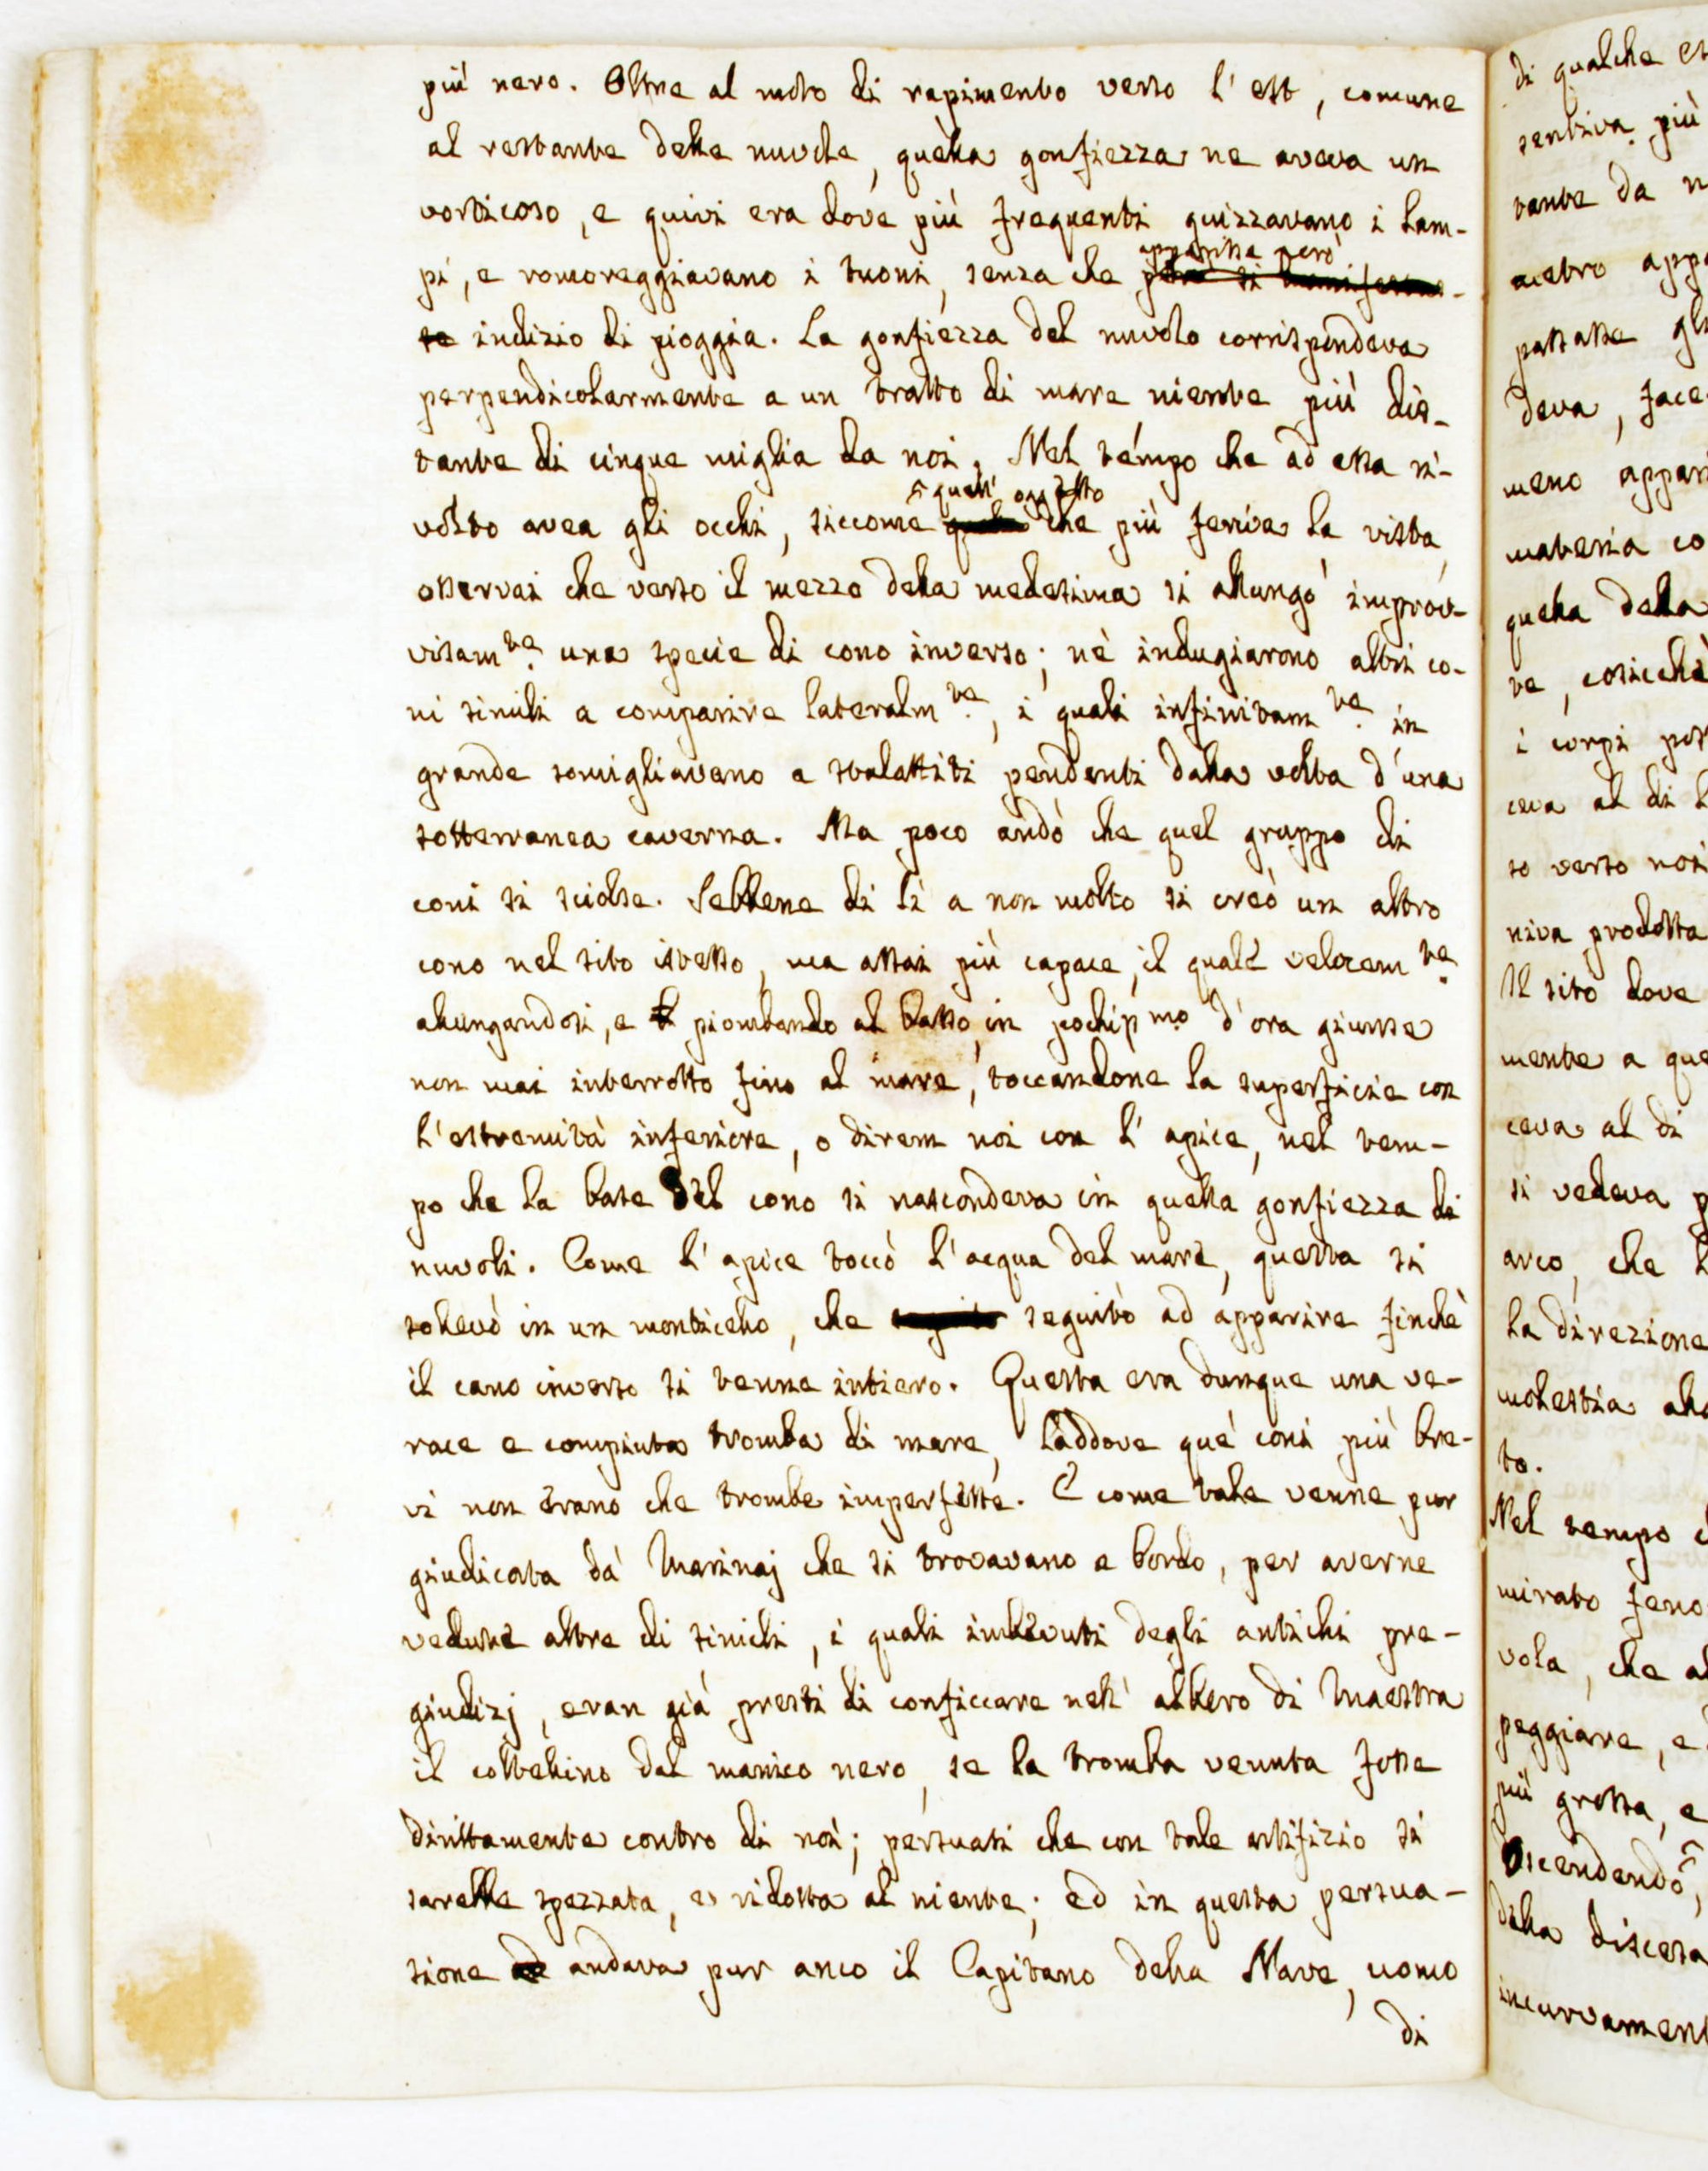 più nero. Oltre al moto di rapimento verso l'est, comune
al restante delle nuvole, quella gonfiezza ne aveva un
vorticoso, e quivi era dove più frequenti guizzavano i lam-
apparisse però
pi, e romoreggiavano i tuoni, senza che però si manifestas-
se indizio di pioggia. La gonfiezza del nuvolo corrispondeva
perpendicolarmente a un tratto di mare niente più dis-
tante di cinque miglia da noi. Nel tempo che ad essa ri-
quell' oggetto
volto avea gli occhi, siccome che più feriva la vista,
osservai che verso il mezzo della medesima si allungò improv-
visam.te una specie di cono inverso; nè indugiarono altri co-
ni simili a comparire lateralm.te, i quali infinitam.te in
grande somigliavano a stalattiti pendenti dalla volta d'una
sotterranea caverna. Ma poco andò che quel gruppo di
coni si sciolse. Sebbene di lì a non molto si creò un altro
cono nel sito istesso, ma assai più capace, il quale velocem.te
allungandosi, e piombando al basso, in pochiss.mo d'ora giunse
non mai interrotto fino al mare, toccandone la superficie con
l'estremità inferiore, o direm noi con l'apice, nel tem-
po che la base del cono si nascondeva in quella gonfiezza di
nuvoli. Come l'apice toccò l'acqua del mare, questa si
sollevò in un monticello, che seguitò ad apparire finchè
il cono inverso si tenne intiero. Questa era dunque una ve-
race e compiuta tromba di mare, laddove que' coni più bre-
vi non erano che trombe imperfette. E come tale venne pur
giudicata da' Marinaj che si trovavano a bordo, per averne
vedute altre di simili, i quali imbevuti degli antichi pre-
giudizj, eran già presti di conficcare nell' albero di Maestra
il coltellino dal manico nero, se la tromba venuta fosse
dirittamente contro di noi; persuasi che con tale artifizio si
sarebbe spezzata, e ridotta al niente; ed in questa persua-
sione andava pur anco il Capitano della Nave, uomo
di
di qualche
sentiva più
tante da
metro
passasse
deva,
meno
materia
quella della
te, cosicchè
i corpi
ceva al di
so verso noi
niva prodotta
Il sito dove
mente a
ceva al di
si vedeva
arco, che
la direzione
molestia
to.
Nel tempo
mirato
vola, che
peggiare, e
più grossa, e
della discesa